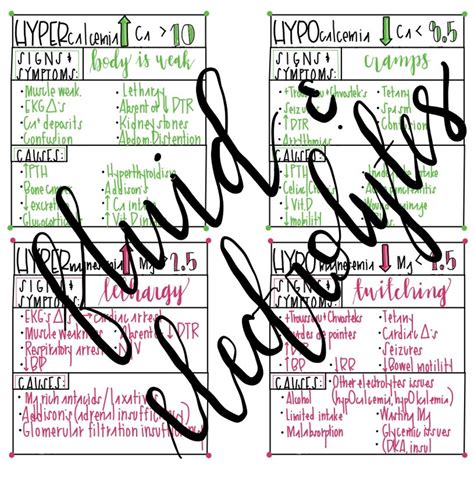 HYPERcalcemia ↑ Ca > 10
SIGNS & SYMPTOMS: body is weak
• Muscle weak.
• EKG Δ's
• Ca+ deposits
• Confusion
• Letharg
• Absent ↓ DTR
• Kidney stones
• Abdom. Distention
CAUSES:
• ↑PTH
• Bone Cance
• ↓excret
• Glucocortic
• Hyperthyroidi
• Addison's
• ↑ Ca intake
• ↑ Vit. D in
HYPOcalcemia ↓ Ca < 8.5
SIGNS & SYMPTOMS: cramps
• +Trousseau + Chvostek's
• Seizur
• ↑ DTR
• Arrhythmias
• Tetany
• Spasm
• Confusion
CAUSES:
• ↓PTH
• Celiac
• ↓ Vit.D
• ↓ motility
intake
HYPER magnesemia ↑ Mg > 2.5
SIGNS & SYMPTOMS: lethargy
• EKG Δ's → Cardiac arrest
• Muscle weakness
• Respiratory arrest
• ↓BP
• Absent ↓ DTR
CAUSES:
• Mg rich antacids / laxatives
• Addison's (adrenal insufficiency)
• Glomerular filtration insufficiency
HYPO magnesemia ↓ Mg < 1.5
SIGNS & SYMPTOMS: twitching
• +Trousseau + Chvosteks
de pointes
• ↑BP
• ↓RR
• Tetany
• Cardiac Δ's
• Seizures
• ↓Bowel motility
CAUSES:
• Alcohol
• Limited intake
• Malabsorption
• Other electrolytes issues
(hypOcalcemia, hypOkalemia)
• Wasting Mg
• Glycemic issues
(DKA, insul
fluid & electrolytes